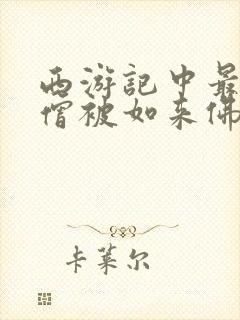 西游記中最
僧被如来佛
卡莱尔